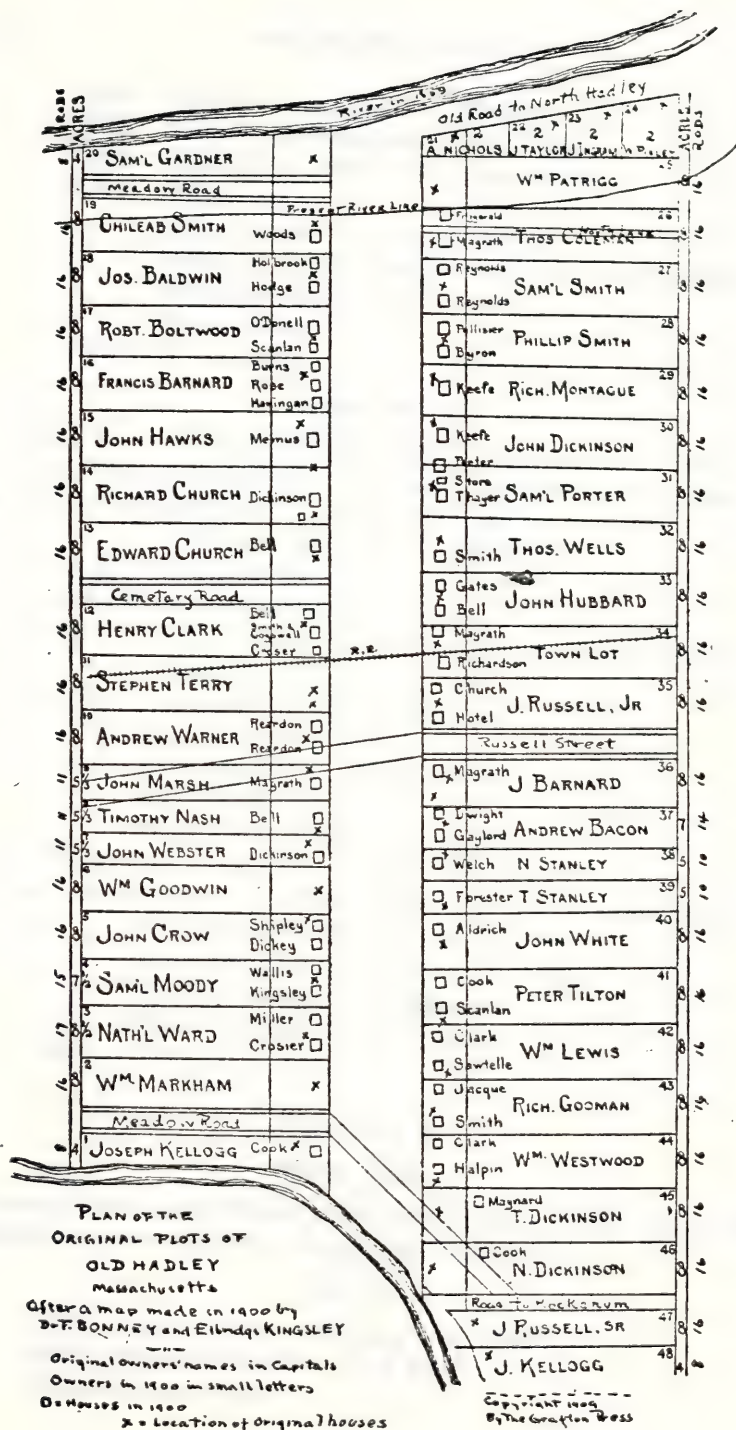 River in 1659
Old Road to North Hadley
RODS
ACRES
8 4 20 SAM'L GARDNER
Meadow Road
Present River Line
16 8 19 CHILEAB SMITH Woods
16 8 18 JOS. BALDWIN Holbrook
Hodge
16 8 17 ROBT. BOLTWOOD O'Donell
Scanlan
16 8 16 FRANCIS BARNARD Burns
Robe
Haningan
16 8 15 JOHN HAWKS Memus
16 8 14 RICHARD CHURCH Dickinson
16 8 13 EDWARD CHURCH Bell
Cemetary Road
16 8 12 HENRY CLARK Bell
Smith &
Cogswell
Croser
R.R.
16 8 11 STEPHEN TERRY
16 8 10 ANDREW WARNER Reardon
Reardon
11 5 1/3 JOHN MARSH Magrath
11 5 1/3 TIMOTHY NASH Bell
11 5 1/3 7 JOHN WEBSTER Dickinson
16 8 6 WM GOODWIN
16 8 5 JOHN CROW Shipley
Dickey
15 7 1/2 4 SAM'L MOODY Wallis
Kingsley
17 8 1/2 3 NATH'L WARD Miller
Crosier
16 8 2 WM. MARKHAM
Meadow Road
8 4 1 JOSEPH KELLOGG Cook
ACRES
RODS
21 2 22 2 23 2 24 2
A. NICHOLS J TAYLOR J INGRAM W. PIXLEY
25 WM PATRIGG 8 16
Fitzgerald 26
North Lane
Magrath THOS COLEMAN 8 16
Reynolds 27
SAM'L SMITH 8 16
Reynolds
Pellisier 28
PHILLIP SMITH 8 16
Byron
29
Keefe RICH. MONTAGUE 8 16
Keefe 30
JOHN DICKINSON 8 16
Porter
Store 31
Thayer SAM'L PORTER 8 16
32
Smith THOS. WELLS 8 16
Gates 33
Bell JOHN HUBBARD 8 16
Magrath 34
Richardson TOWN LOT 8 16
Church 35
Hotel J. RUSSELL, JR 8 16
Russell Street
Magrath 36
J BARNARD 8 16
Dwight 37
Gaylord ANDREW BACON 7 14
Welch N STANLEY 38 5 10
Forester T STANLEY 39 5 10
Aldrich 40
JOHN WHITE 8 16
Cook 41
PETER TILTON 8 16
Scanlan
Clark 42
WM LEWIS 8 16
Sawtelle
Jacque 43
RICH. GOODMAN 8 16
Smith
Clark 44
Halpin WM. WESTWOOD 8 16
Maynard 45
T. DICKINSON 8 16
Cook 46
N. DICKINSON 8 16
Road to Hockanum
47
J RUSSELL, SR 8 16
48
J. KELLOGG 4 8
PLAN OF THE
ORIGINAL PLOTS OF
OLD HADLEY
Massachusetts
After a map made in 1900 by
Dr. F. BONNEY and Elbridge KINGSLEY
Original owners' names in Capitals
Owners in 1900 in small letters
□ = Houses in 1900
x = Location of original houses
Copyright 1909
By The Grafton Press